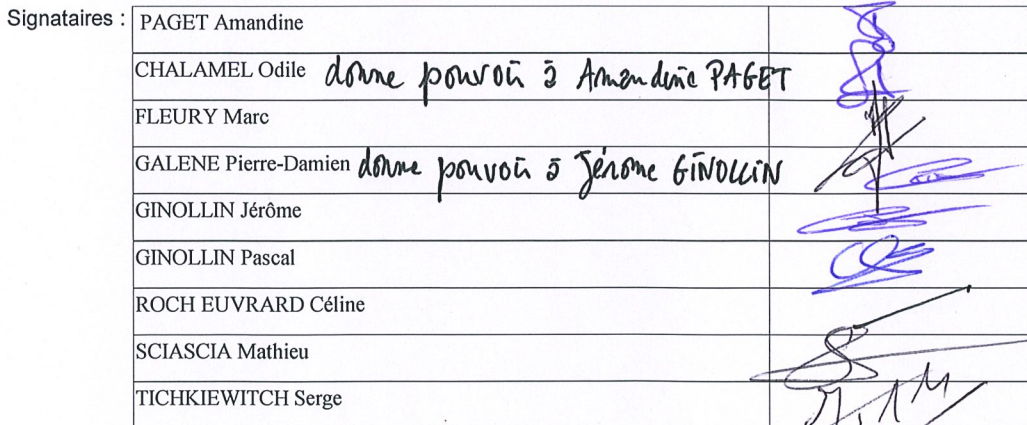 Signataires : PAGET Amandine
CHALAMEL Odile donne pouvoir à Amandine PAGET
FLEURY Marc
GALENE Pierre-Damien donne pouvoir à Jérome GINOLLIN
GINOLLIN Jérôme
GINOLLIN Pascal
ROCH EUVRARD Céline
SCIASCIA Mathieu
TICHKIEWITCH Serge